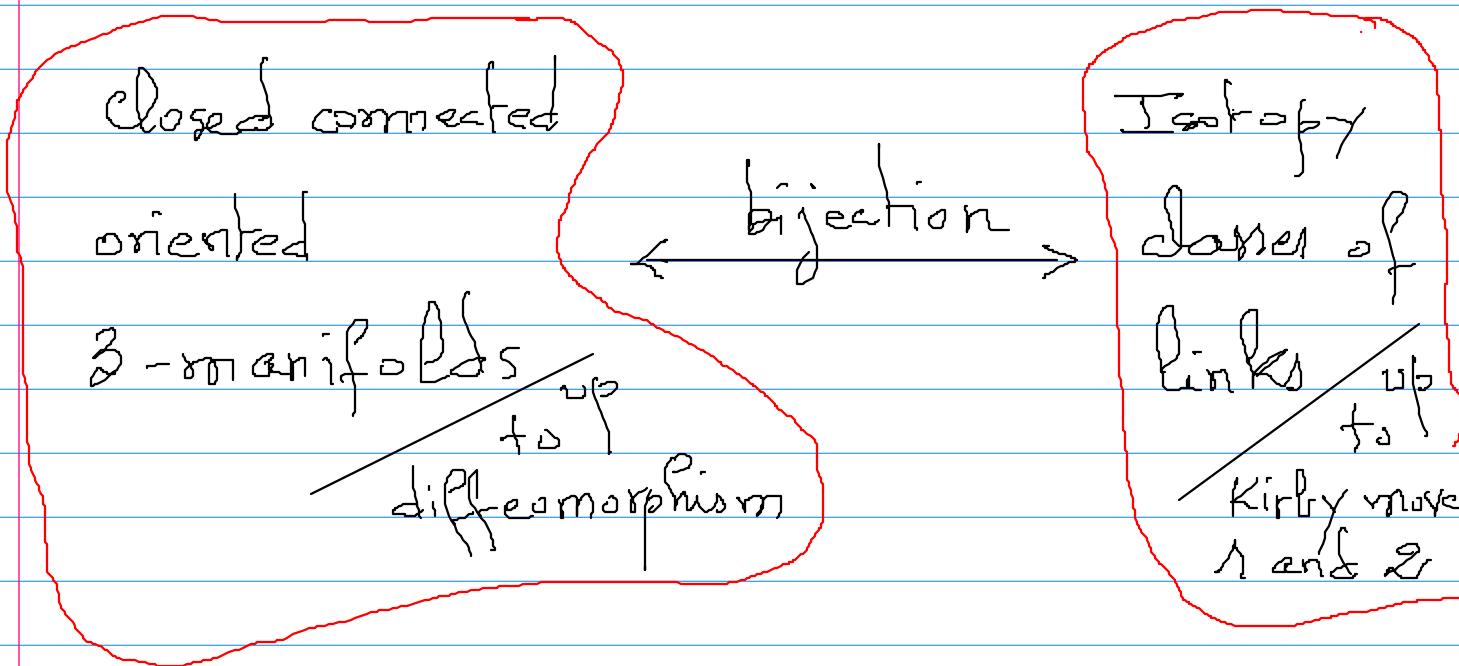 closed connected
oriented
3-manifolds
up
to
diffeomorphism
bijection
Isotopy
classes of
links
up
to
Kirby move
1 and 2